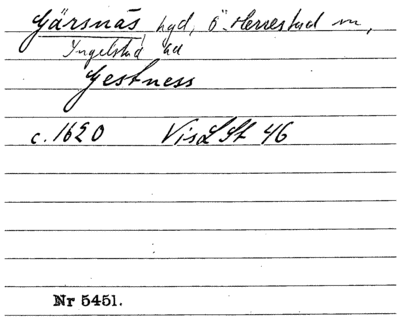 Gärsnäs, hgd, Ö. Herrestad sn,
Ingelstad hd
Gestness
c. 1620 VisLSt 46
Nr 5451.